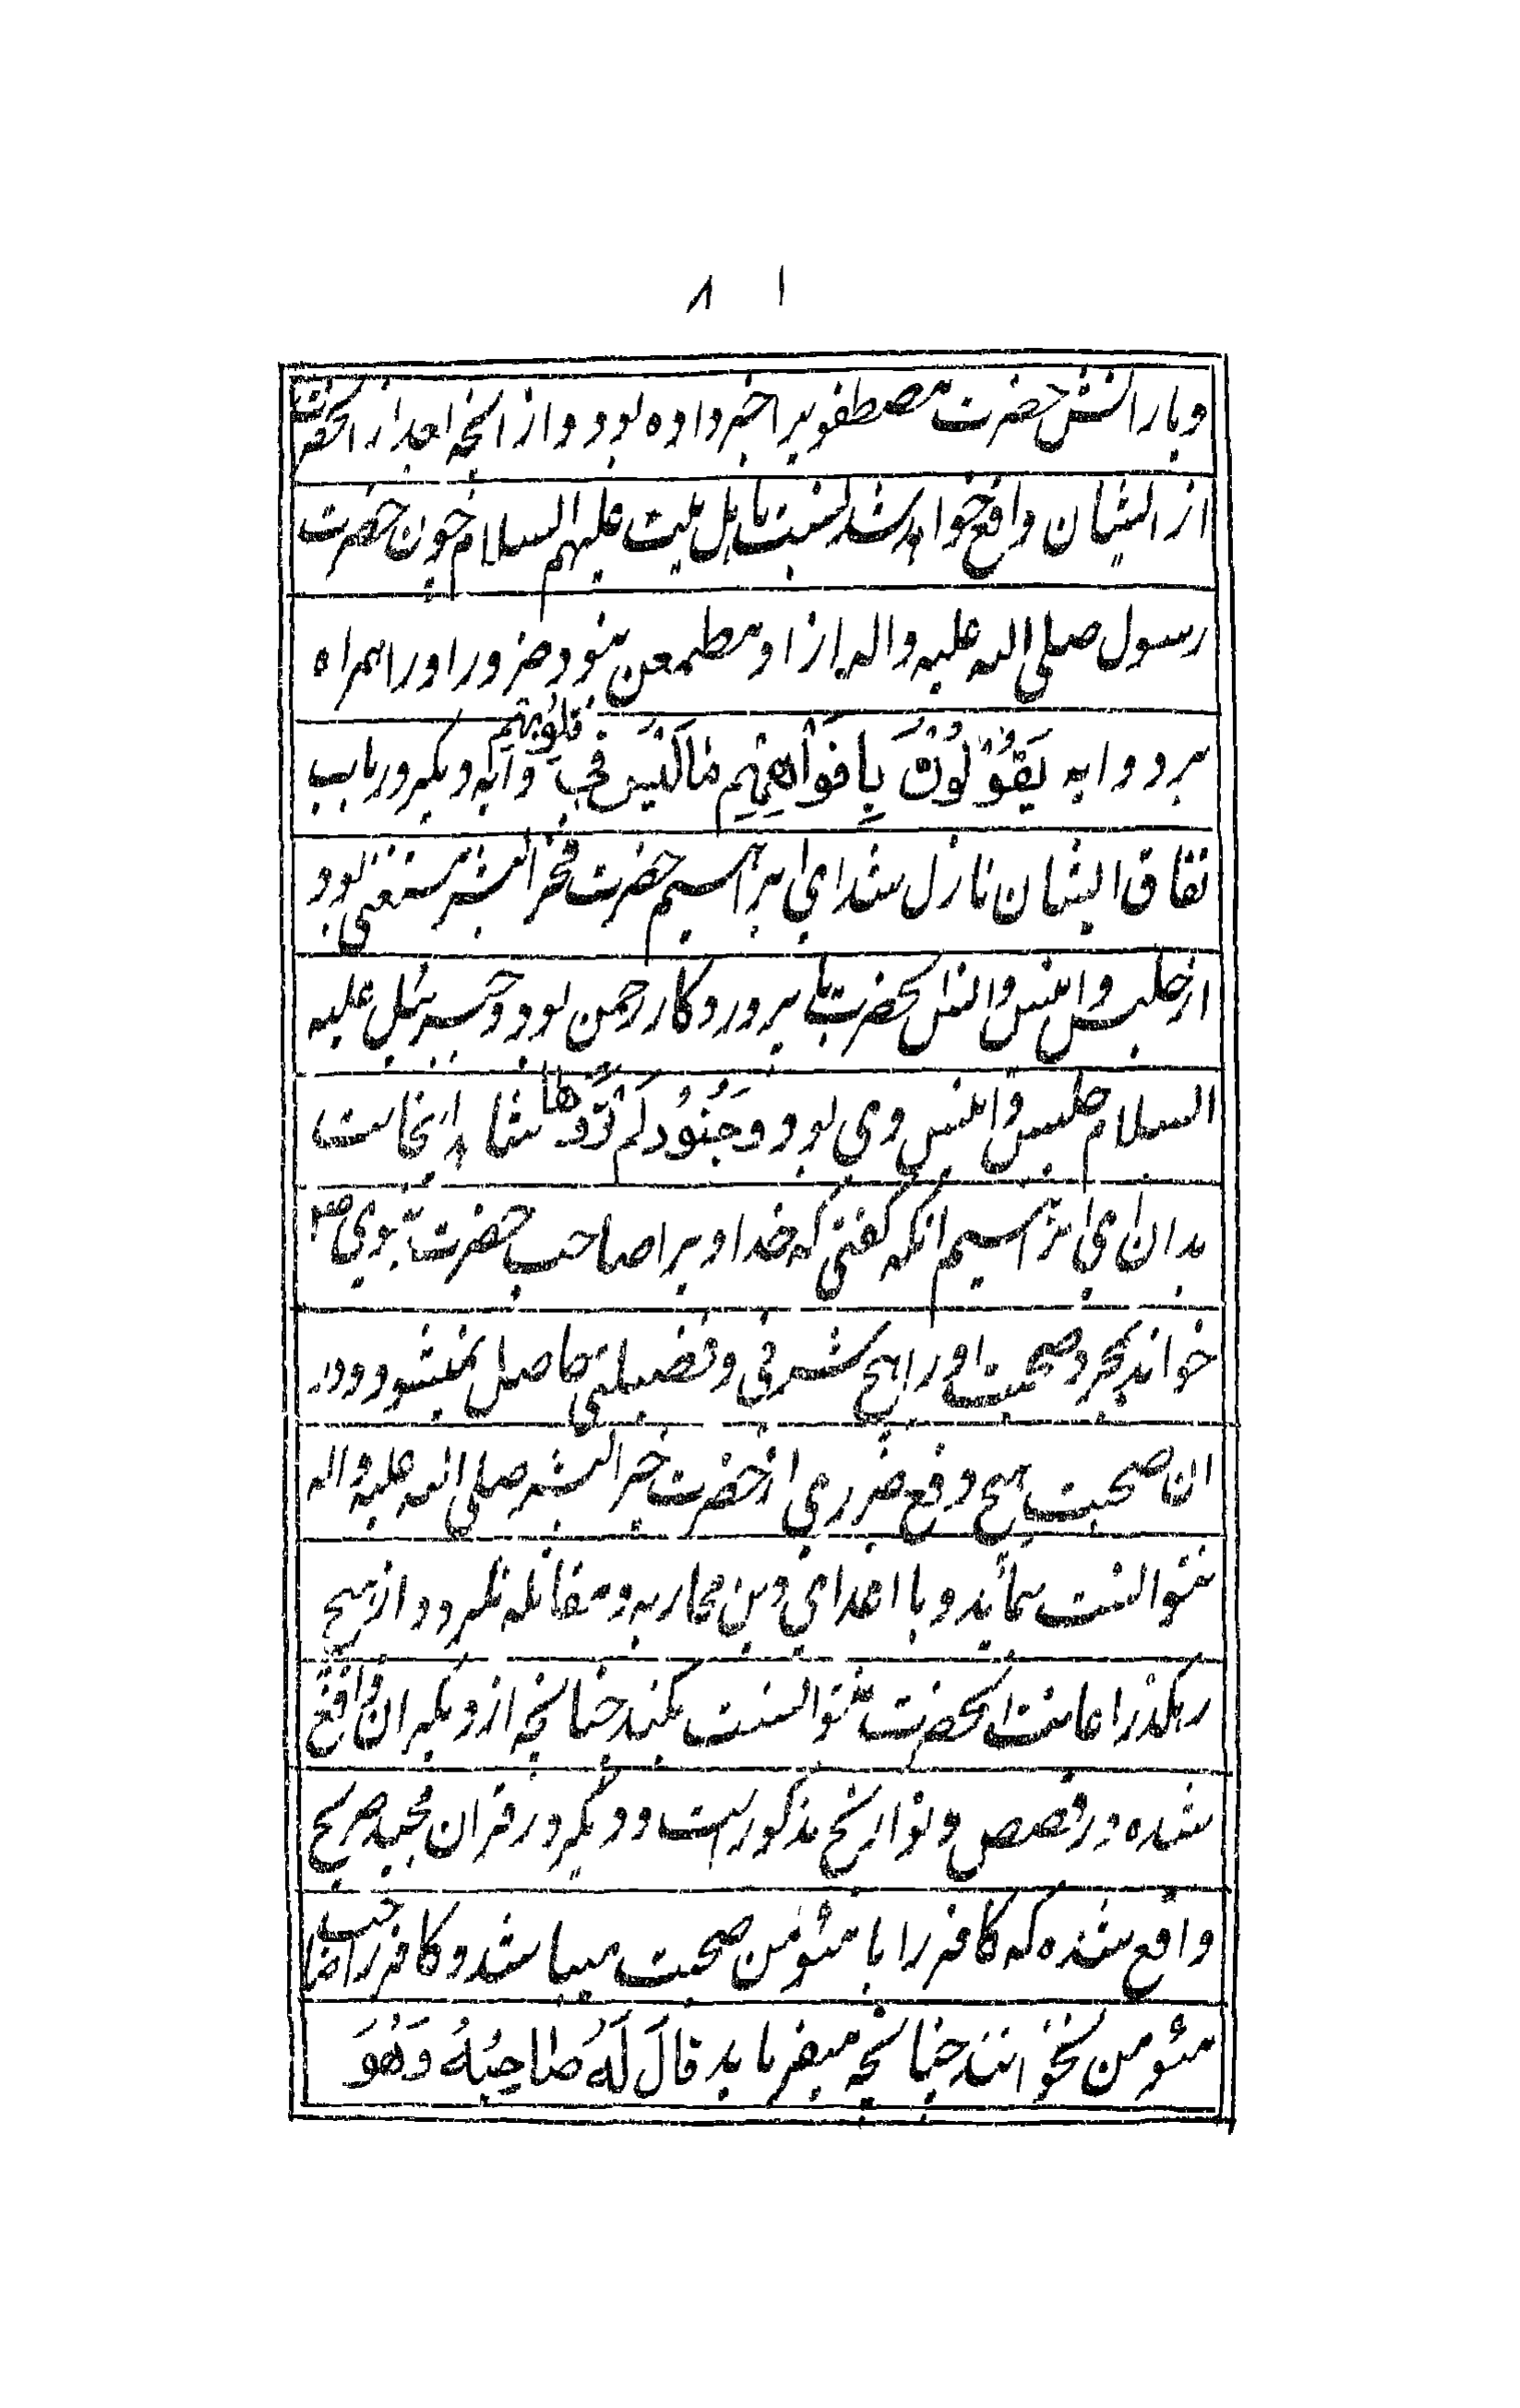 ۸ ۱
و یارانش حضرت مصطفویرا خبر داده بود و از انچه بعد از انحضرت
از ایشان واقع خواهد شد نسبت باهل بیت علیهم السلام چون حضرت
رسول صلی الله علیه و اله از او مطمعن نبود ضرور اورا همراه
برد و ایه یَقُوْلُوْنَ بِافَوْاهِهِم مٰا لَیْسَ فی قُلوُبِهِم و ایه دیگر در باب
نفاق ایشان نازل شد ای ابراهیم حضرت فخر البشر مستغنی بود
از جلیس و انیس و انس انحضرت با پروردکار رحمن بود و جبرئیل علیه
السلام جلیس و انیس وی بود و جُنُوُد لَم تَرَوْهٰا شاهد اینحاست
بدان ای ابراهیم انکه کفتی که خدا ویرا صاحب حضرت نبوی ص
خواند بمجرد صحبت اورا هیچ شرفی و فضیلتی حاصل نمیشود و در
ان صحبت هیچ دفع ضرری از حضرت خیر البشر صلی الله علیه و اله
نتوانست نماید و با اعدای دین محاربه و مقاتله نکرد و از هیچ
رهکذر اعانت انحضرت نتوانست بکند چنانچه از دیکران واقع
شده در قصص و تواریخ مذکور است و دیکر در قران مجید صریح
واقع شده که کافر را با مئومن صحبت میباشد و کافر را صاحب
مئومن نخوانند چنانچه میفرماید قٰالَ لَهُ صٰاحِبُهُ وَهُوَ